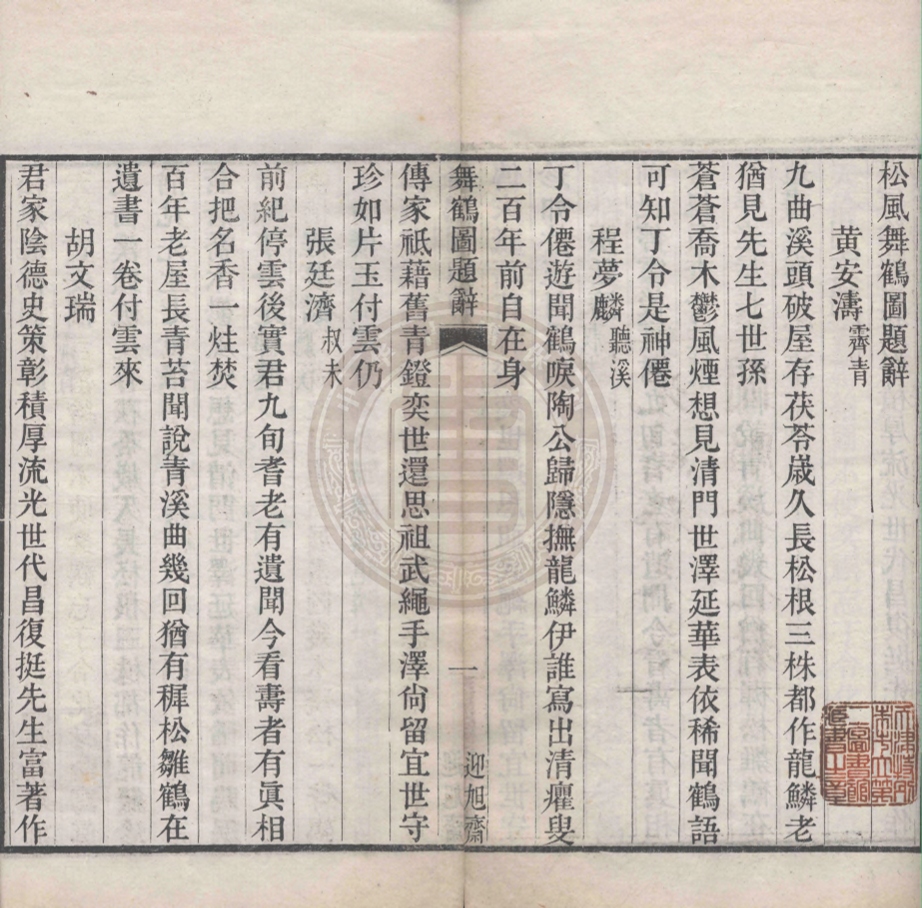 松風舞鶴圖題辭
黃安濤 霽青
九曲溪頭破屋存茯苓嵗久長松根三株都作龍鱗老
猶見先生七世孫
蒼蒼喬木鬱風煙想見清門世澤延華表依稀聞鶴語
可知丁令是神僊
程夢麟 聽溪
丁令僊遊聞鶴唳陶公歸隱撫龍鱗伊誰寫出清癯叟
二百年前自在身
舞鶴圖題辭 一 迎旭齋
傳家祇藉舊青鐙奕世還思祖武繩手澤尙留宜世守
珍如片玉付雲仍
張廷濟 叔未
前紀停雲後實君九旬耆老有遺聞今看壽者有眞相
合把名香一炷焚
百年老屋長青苔聞說青溪曲幾回猶有稺松雛鶴在
遺書一卷付雲來
胡文瑞
君家陰德史策彰積厚流光世代昌復挺先生富著作